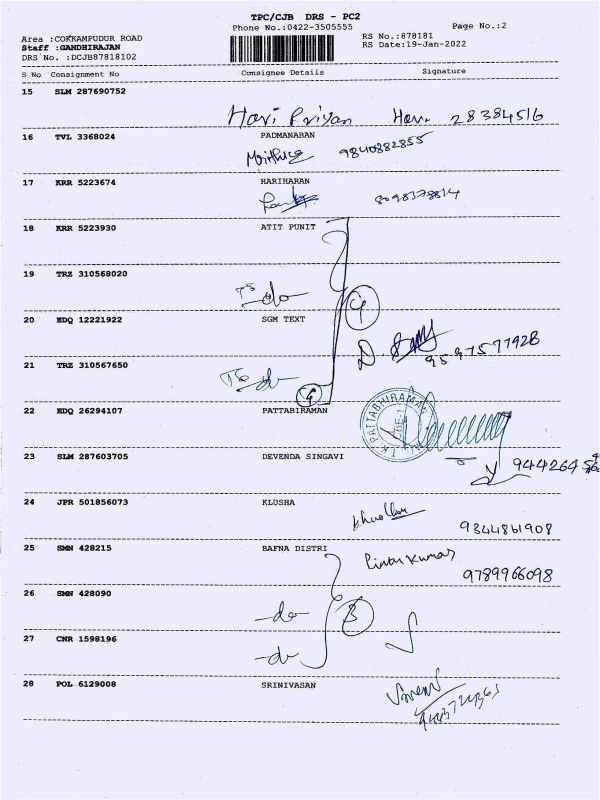 TPC/CJB DRS - PC2
Phone No.:0422-3505555
Page No.:2
Area :COKKAMPUDUR ROAD
Staff :GANDHIRAJAN
DRS No. :DCJB87818102
RS No.:878181
RS Date:19-Jan-2022
S No Consignment No Consignee Details Signature
15 SLM 287690752
Hari Priyan Hari 28384516
16 TVL 3368024 PADMANABAN
9840882855
17 KRR 5223674 HARIHARAN
18 KRR 5223930 ATIT PUNIT
19 TRZ 310568020
do
20 EDQ 12221922 SGM TEXT
4
D.
21 TRZ 310567650
do
4
22 EDQ 26294107 PATTABIRAMAN
PATTABHIRAMAN
23 SLM 287603705 DEVENDA SINGAVI
24 JPR 501856073 KLUSHA
9344861908
25 SMN 428215 BAFNA DISTRI
Kumar
9789966098
26 SMN 428090
-do 3
27 CNR 1598196
-do
28 POL 6129008 SRINIVASAN